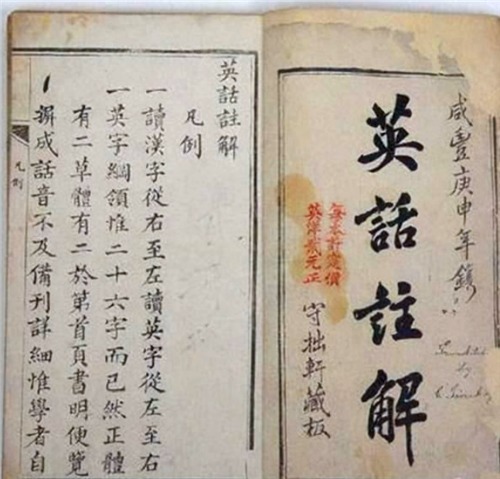 咸豐庚申年鐫
英話註解
每本計定價
英洋貳元正
守拙軒藏板
by
英話註解
凡例
一讀漢字從右至左讀英字從左至右
一英字綱領惟二十六字而已然正體
有二草體有二於第首頁書明便覽
一成話音不及備刊詳細惟學者自
凡例